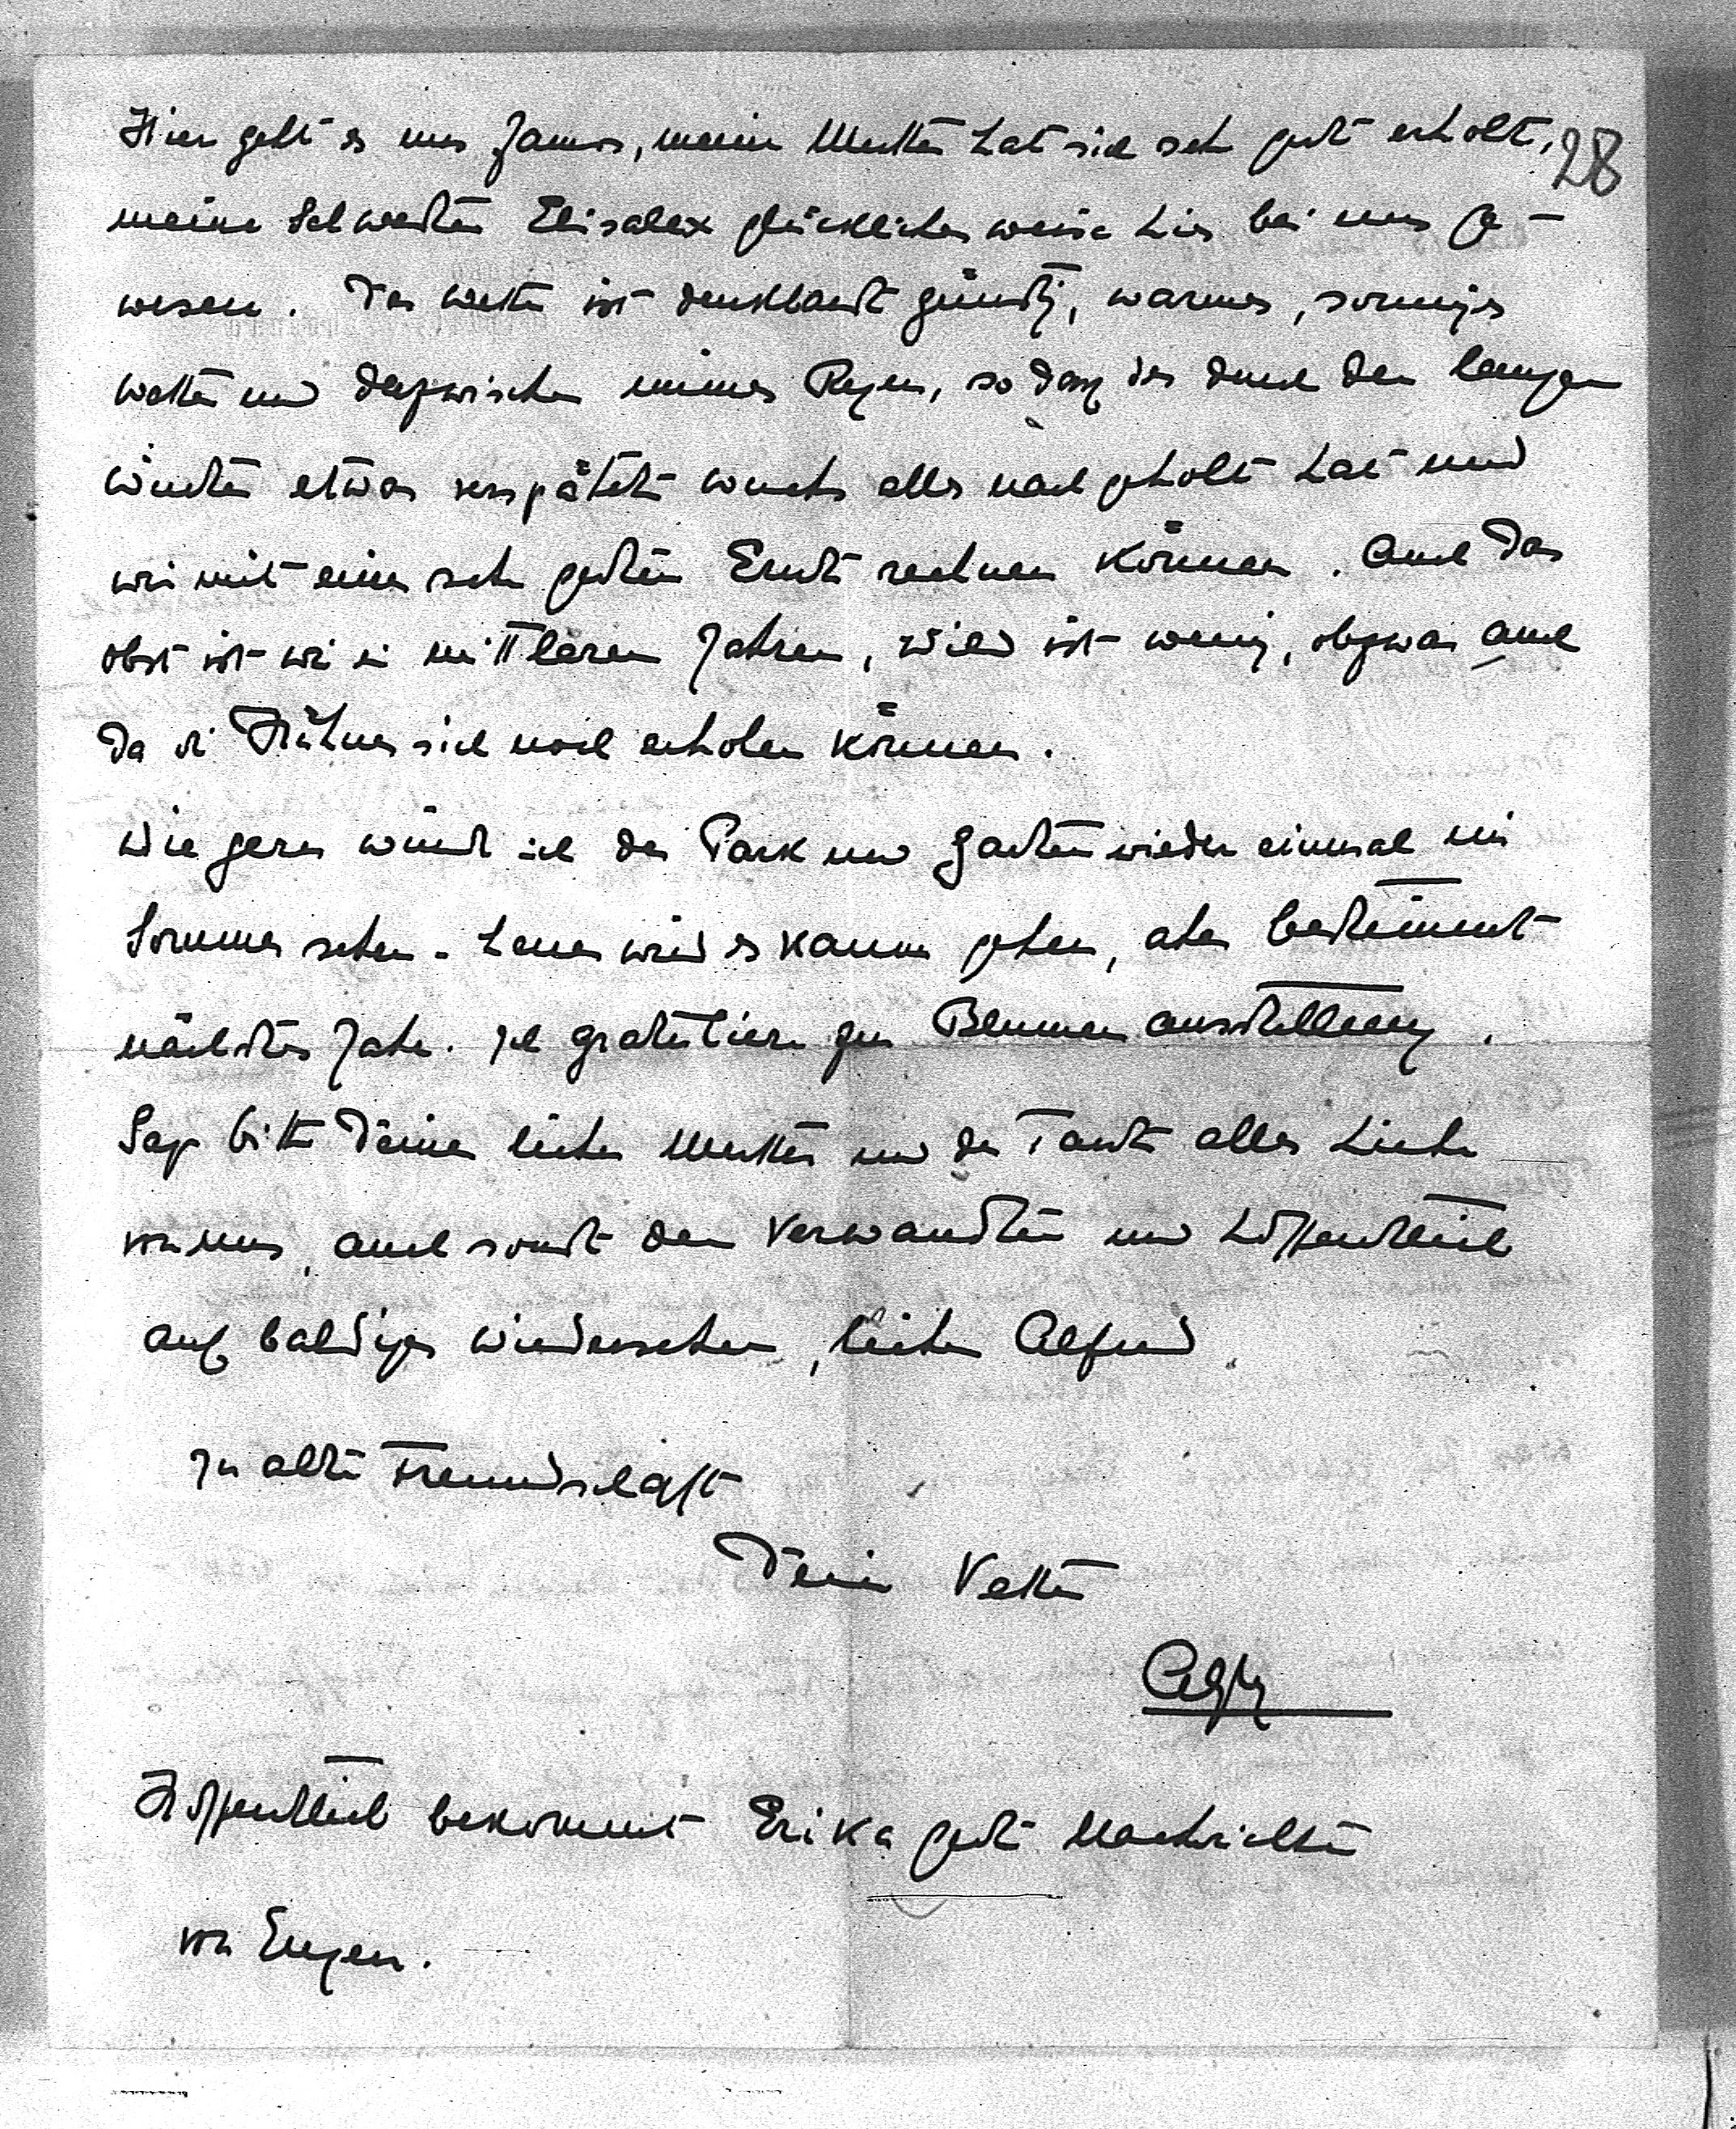 28
Hier geht es uns famos, meine Mutter hat sich sehr gut erholt,
meine Schwester Elisalex glücklicherweise hier bei uns ge-
wesen. Das Wetter ist denkbarst günstig, warmes, sonniges
Wetter und dazwischen immer Regen, so dass das durch den langen
Winter etwas verspätete Wachs alles nachgeholt hat und
wir mit einer sehr guten Ernte rechnen können. Auch das
Obst ist wie in mittleren Jahren, Wild ist wenig, obzwar auch
da die Hühner sich noch erholen können.
Wie gern würde ich den Park und Garten wieder einmal im
Sommer sehen. Heuer wird es kaum gehen, aber bestimmt
nächstes Jahr. Ich gratuliere zur Blumenausstellung.
Sage bitte Deiner lieben Mutter und der Tante alles Liebe
von uns, auch sonst den Verwandten und hoffentlich
auf baldiges Wiedersehen, lieber Alfred
In alter Freundschaft
Dein Vetter
Hoffentlich bekommt Erika gute Nachrichten
von Eugen.